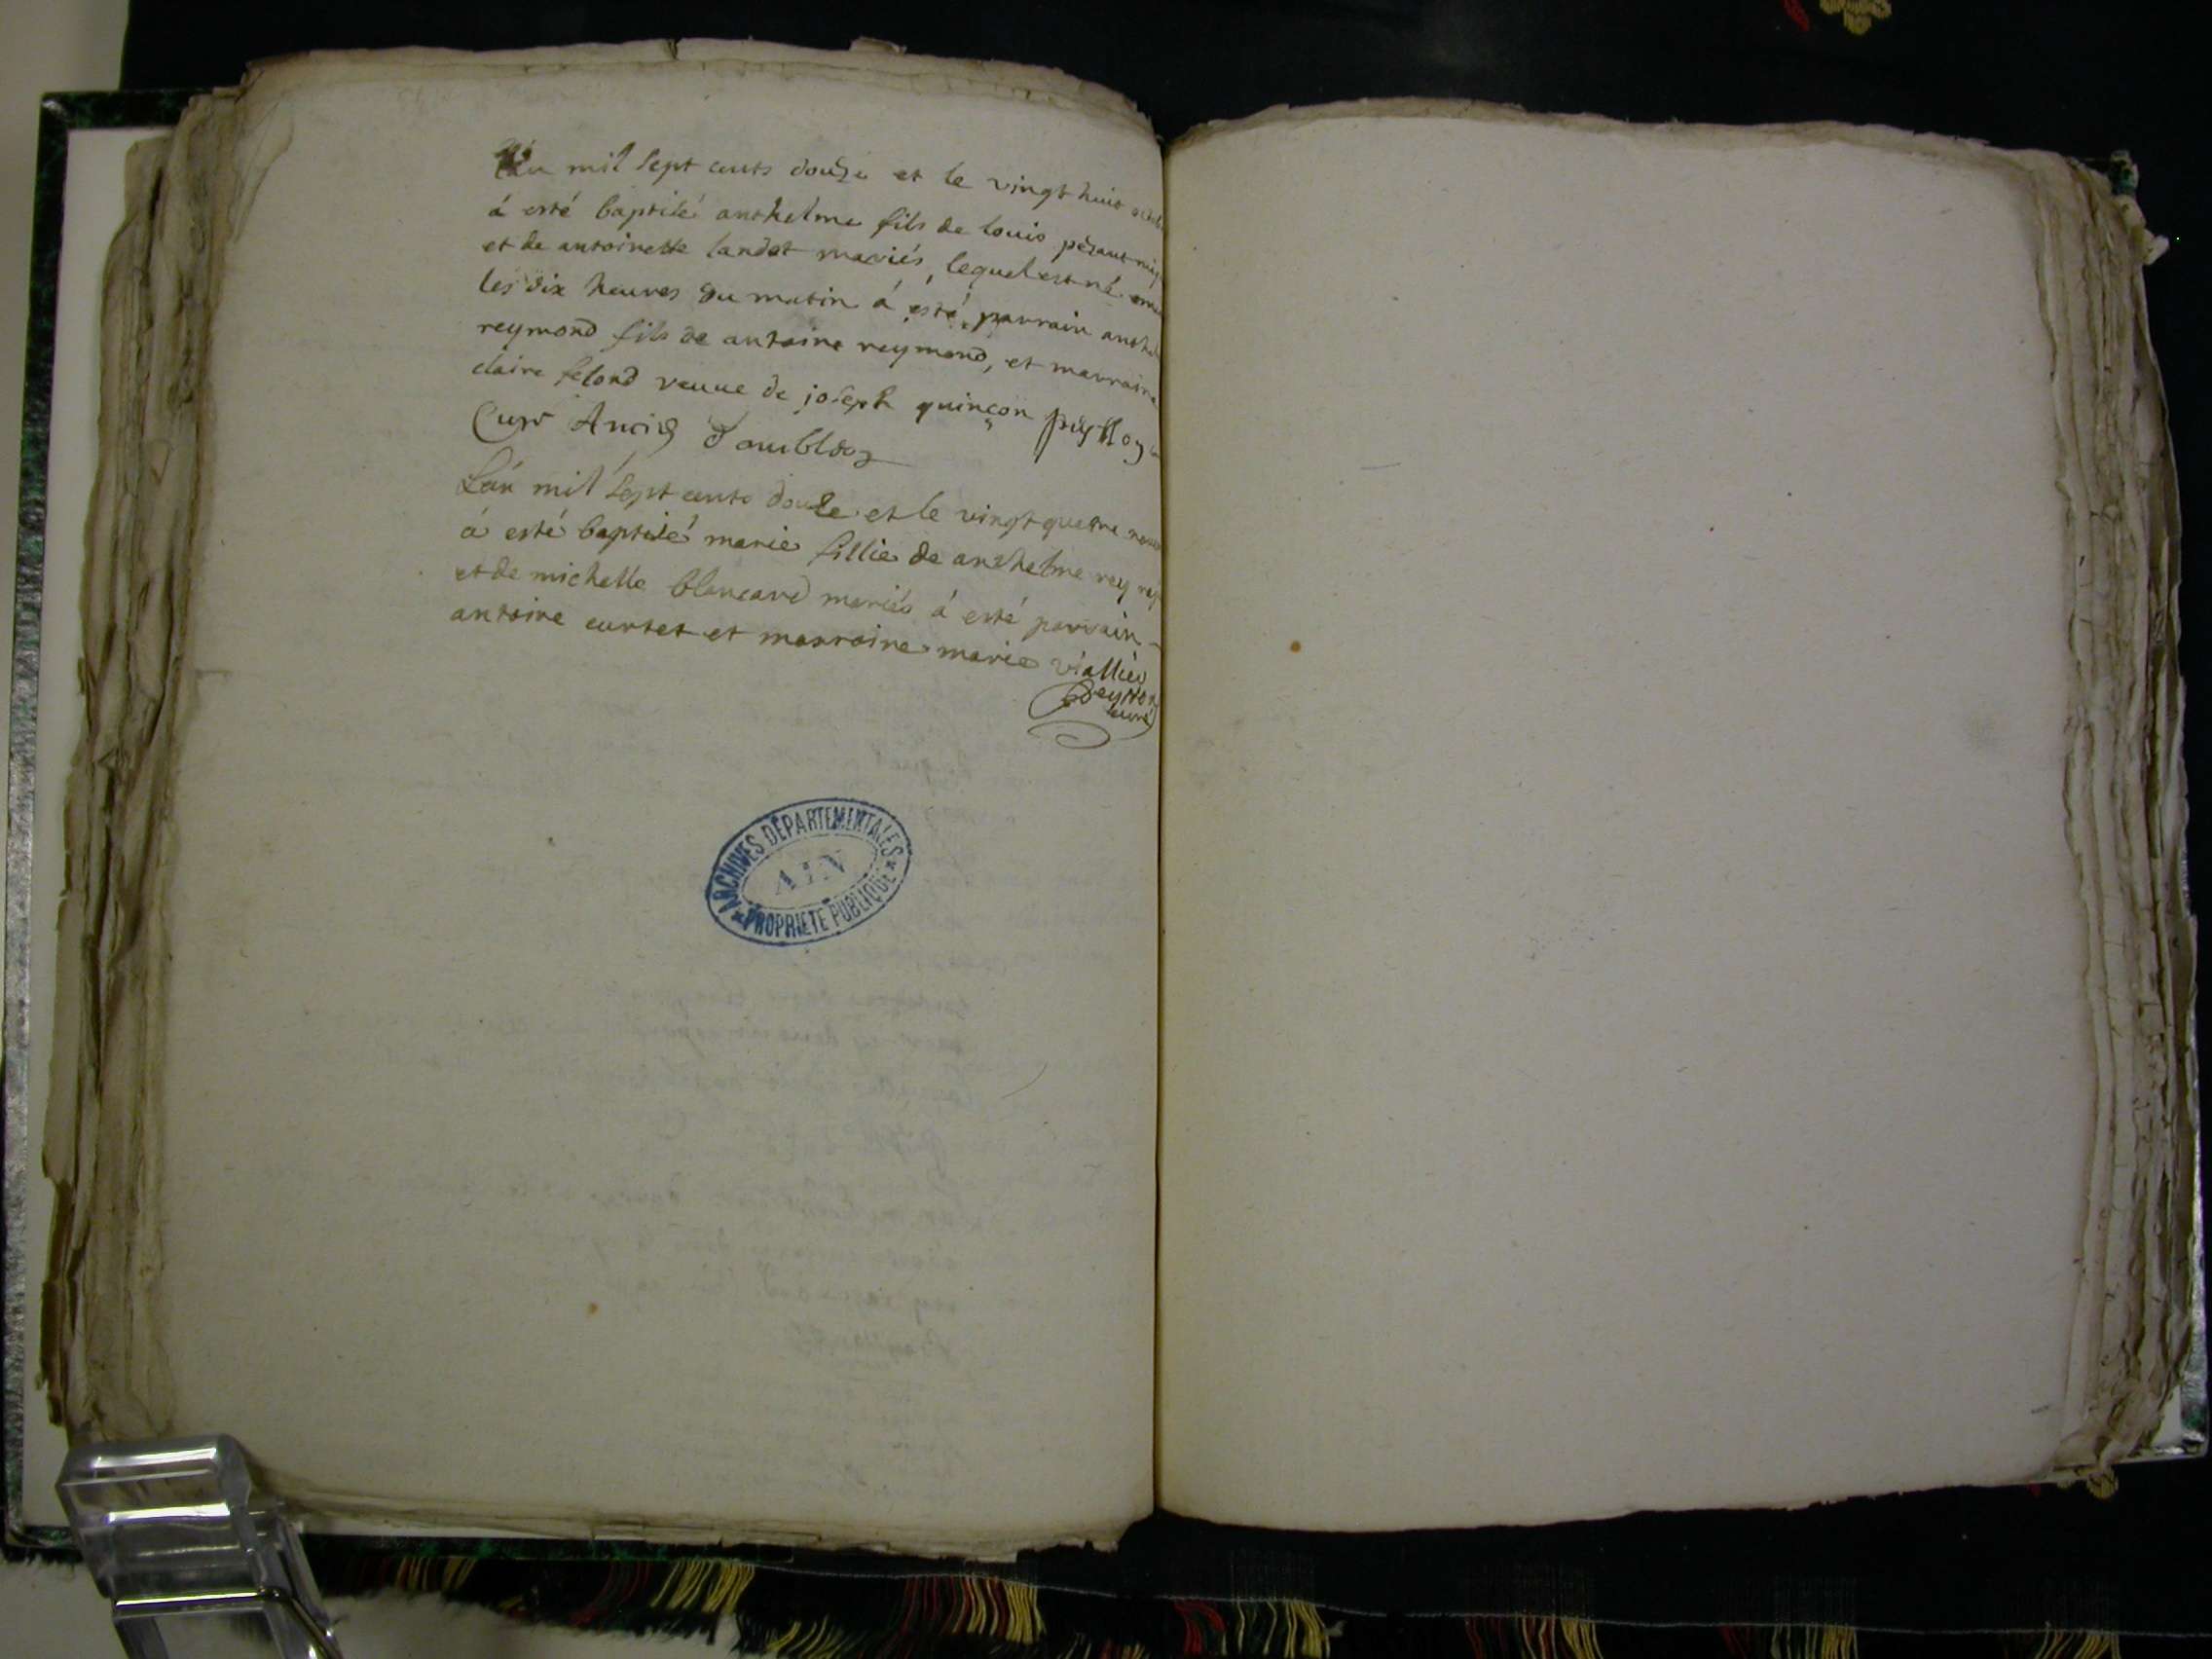 L'an mil sept cents douze et le vingt huit
á esté baptisé anthelme fils de louis pezant
et de antoinette landot mariés, lequel est né
les dix heures du matin á esté parrain anthel
reymond fils de antoine reymond, et marraine
claire felond veuue de joseph quinçon
Curé
L'an mil sept cents douse et le vingt quatre
á esté baptisé marie fillie de anthelme rey
et de michelle blancard mariés á esté parrain
antoine curtet et marraine marie viallier
curé
ARCHIVES DÉPARTEMENTALES
AIN
PROPRIETÉ PUBLIQUE